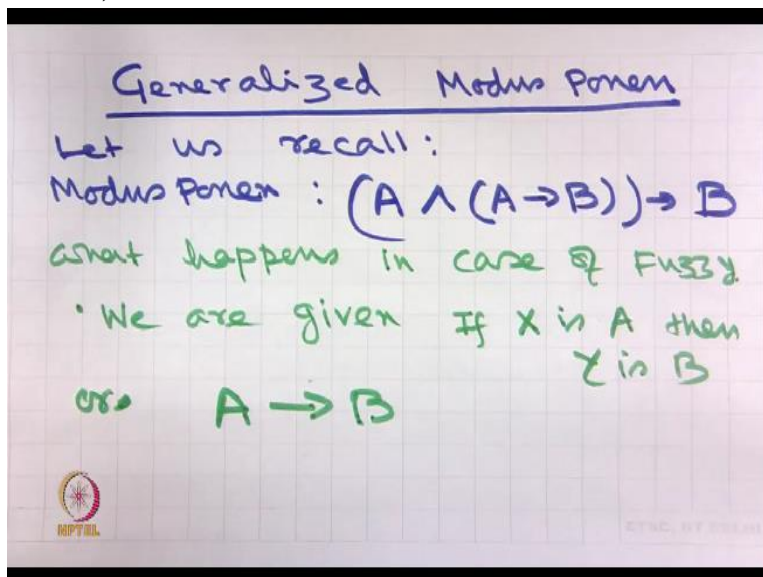 Generalized Modus Ponen
Let us recall:
Modus Ponen : (A ∧ (A→B)) → B
What happens in case of Fuzzy.
• We are given If X is A then
Y is B
or A → B
NPTEL
ETSC, IIT DELHI